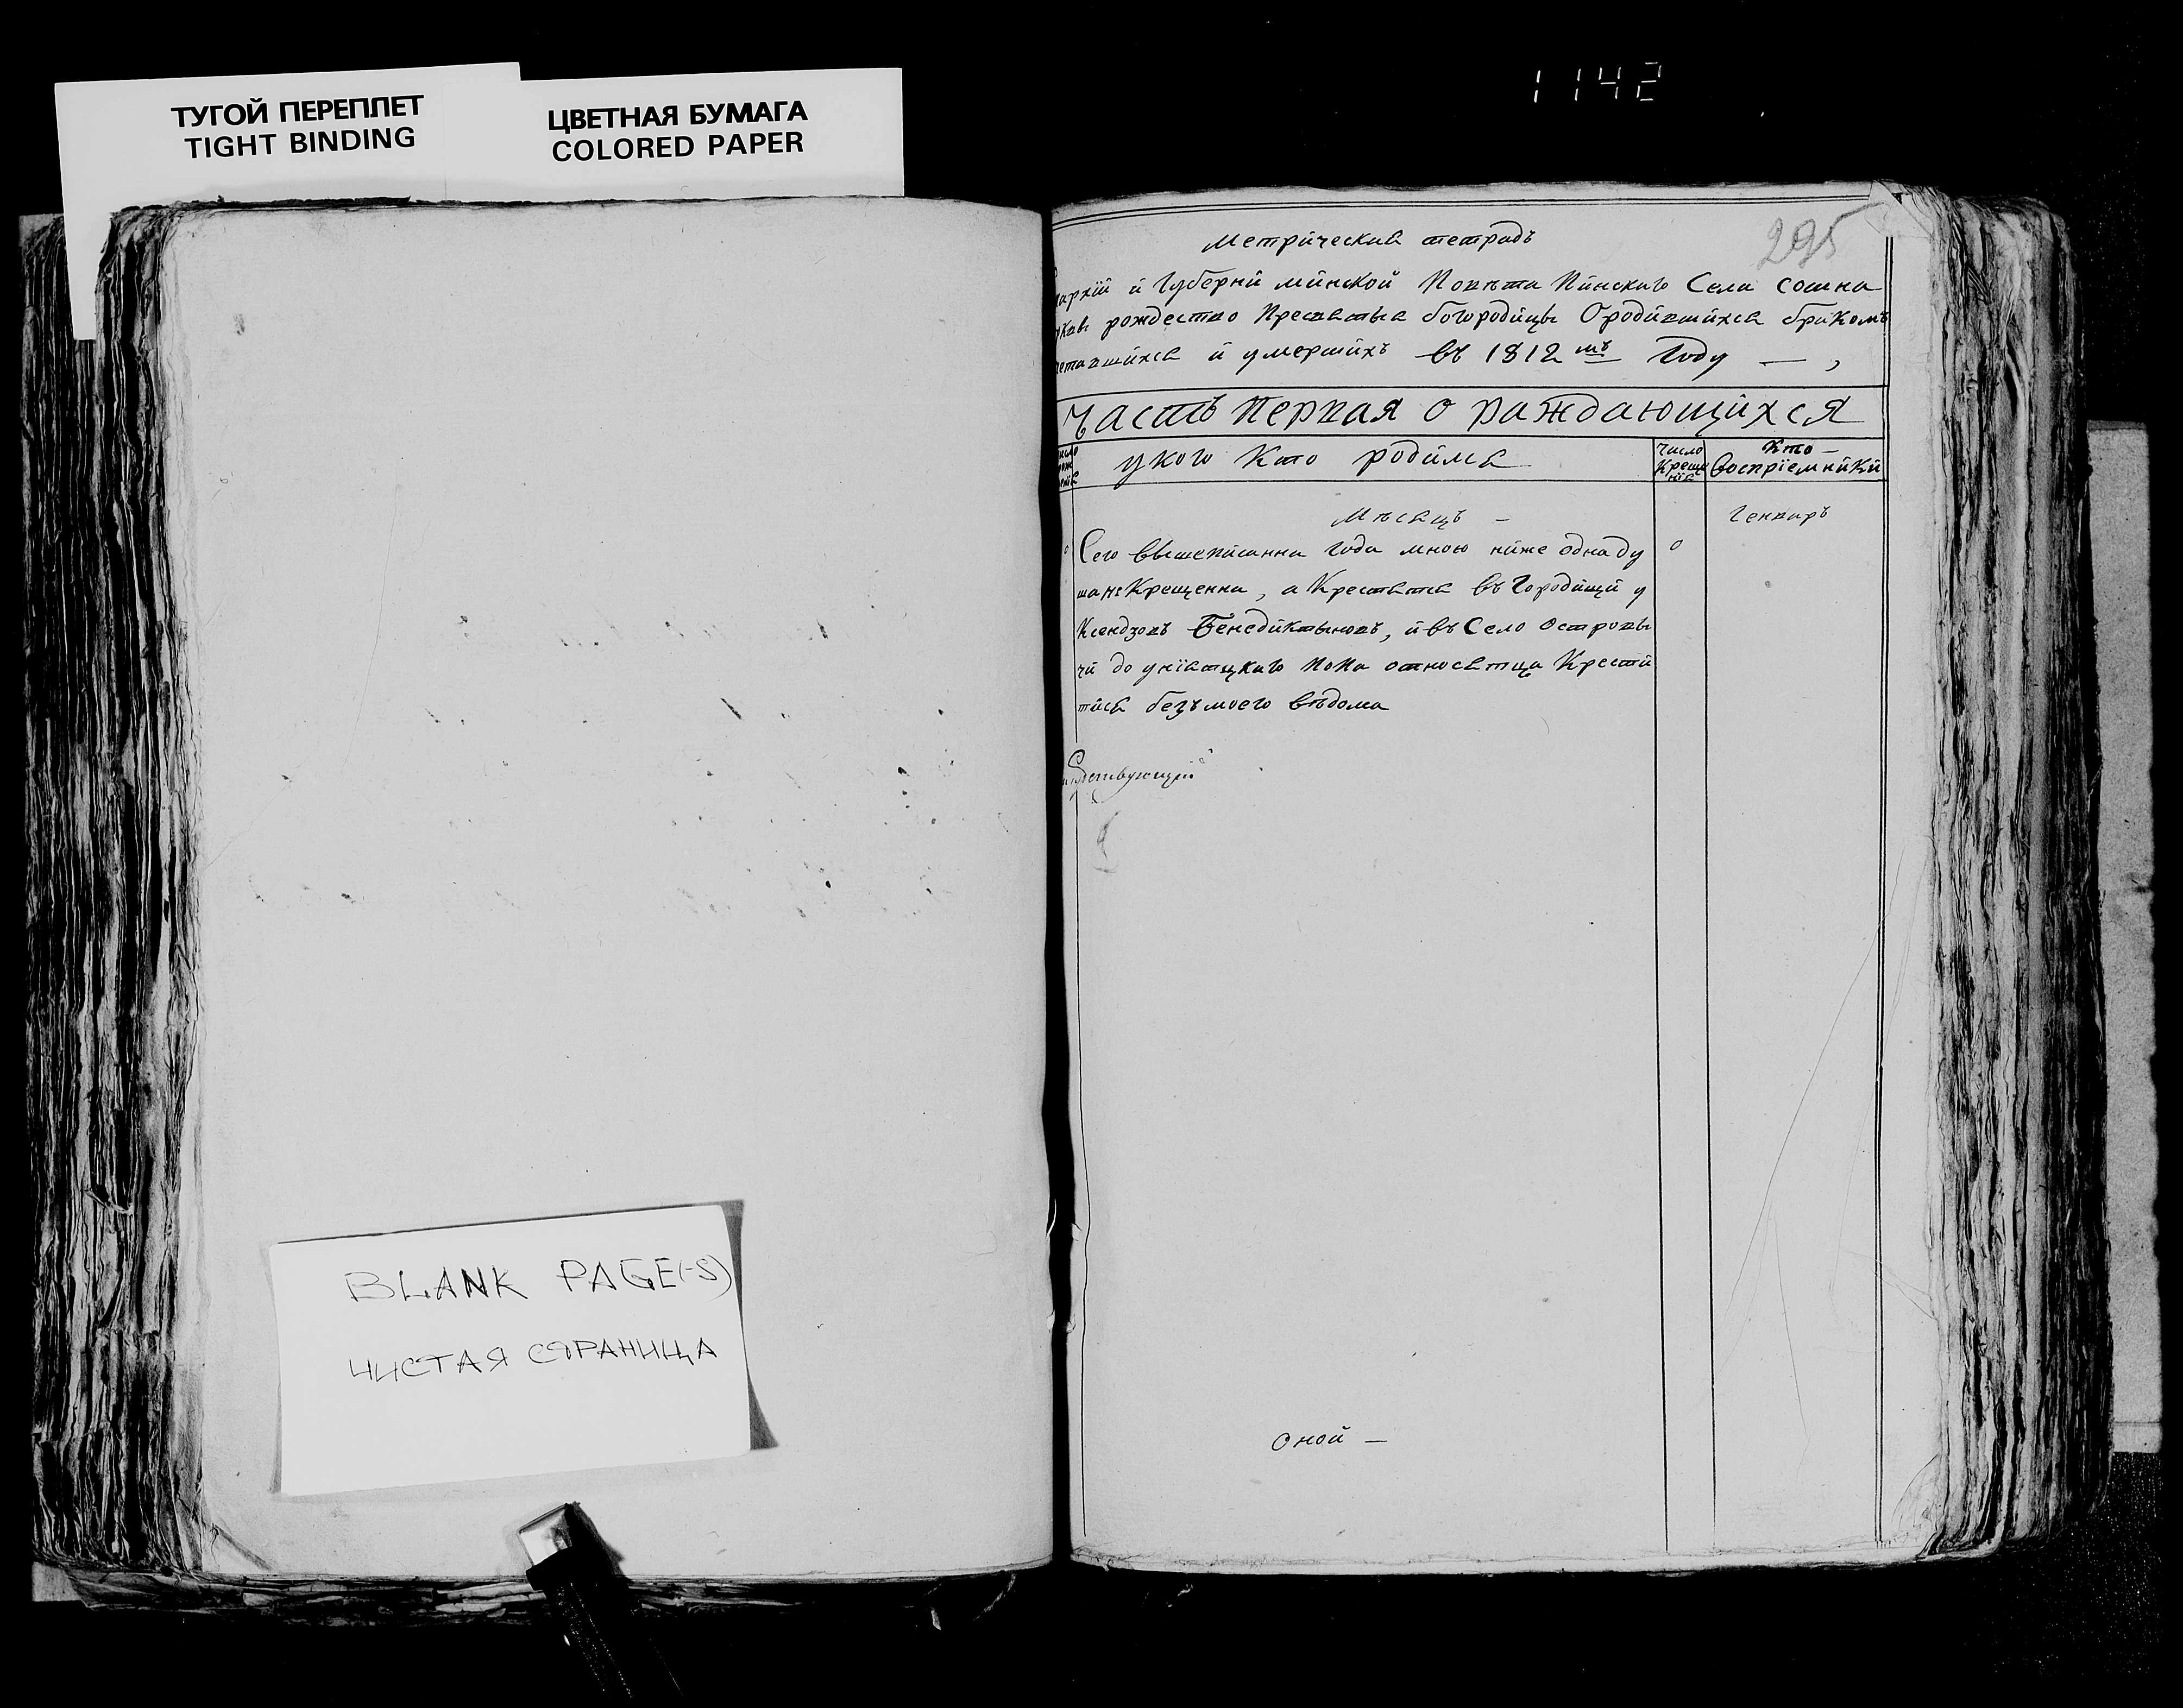 ТУГОЙ ПЕРЕПЛЕТ
TIGHT BINDING
ЦВЕТНАЯ БУМАГА
COLORED PAPER
1142
295
Метрическая тетрадь
пархїи и Губерни минской Повѣта Пинскаго Села сошна
рождество Пресвятыя богородицы О родившихся бракомъ
четавшихся и умершихъ въ 1812 мъ Году — ,
Часть первая о раждающихся
у кого Кто родился
Число Креще нїя
Кто — воспрїемники
Мѣсяцъ —
Генварь
0 Сего вышеписанна года мною ниже одна ду 0
ша не Крещенна, а Крестятся въ Городищи у
Ксендзовъ Бенедиктыновъ, и въ Село Островы
чи до унїатцкаго попа относятца Крести
тися безъ моего вѣдома
оной —
BLANK PAGE(-S)
ЧИСТАЯ СТРАНИЦА